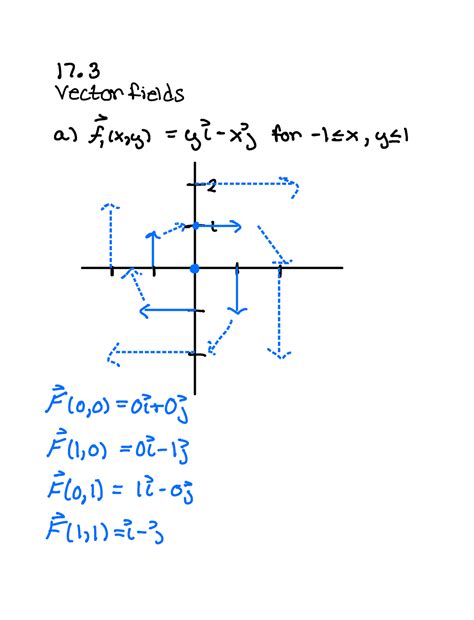 17.3
Vector fields
a) f⃗₁(x,y) = yi⃗ - xj⃗ for -1≤x, y≤1
2
1
F⃗(0,0) = 0i⃗+0j⃗
F⃗(1,0) = 0i⃗-1j⃗
F⃗(0,1) = 1i⃗-0j⃗
F⃗(1,1) = i⃗-j⃗